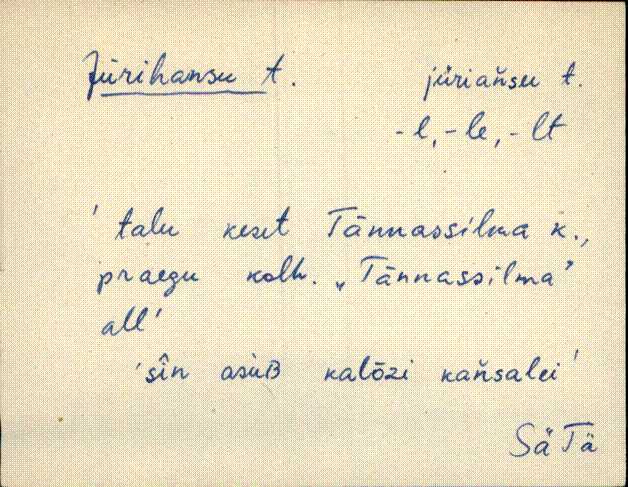 Jürihansu t. jüriańsu t.
-l, -le, -lt
' talu keset Tännassilma k.,
praegu kolh. „Tännassilma"
all'
'sîn asùB kalōzi kańsalei'
SäTä